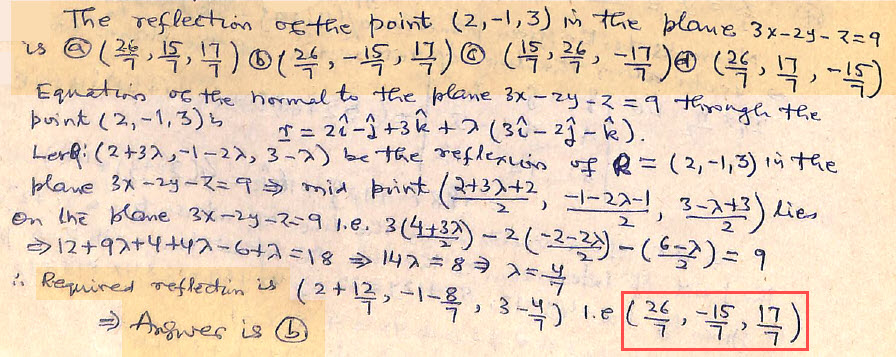 The reflection of the point (2,-1,3) in the plane 3x-2y-z=9
is ⓐ (26/7, 15/7, 17/7) ⓑ (26/7, -15/7, 17/7) ⓒ (15/7, 26/7, -17/7) ⓓ (26/7, 17/7, -15/7)
Equation of the normal to the plane 3x-2y-z=9 through the
point (2,-1,3) is r = 2î-ĵ+3k̂+λ(3î-2ĵ-k̂).
Let Q: (2+3λ,-1-2λ, 3-λ) be the reflexion of P = (2,-1,3) in the
plane 3x-2y-z=9 ⇒ mid point (2+3λ+2/2, -1-2λ-1/2, 3-λ+3/2) lies
on the plane 3x-2y-z=9 i.e. 3(4+3λ/2)-2(-2-2λ/2)-(6-λ/2)=9
⇒12+9λ+4+4λ-6+λ=18 ⇒ 14λ=8⇒ λ=4/7
∴ Required reflection is (2+12/7, -1-8/7, 3-4/7) i.e (26/7, -15/7, 17/7)
⇒ Answer is ⓑ